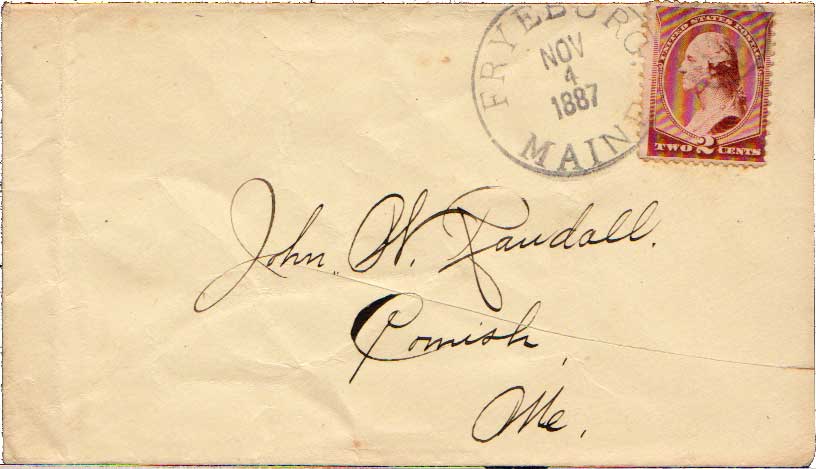 FRYEBURG
NOV
4
1887
MAINE
UNITED STATES POSTAGE
TWO 2 CENTS
John W. Randall.
Cornish,
Me.